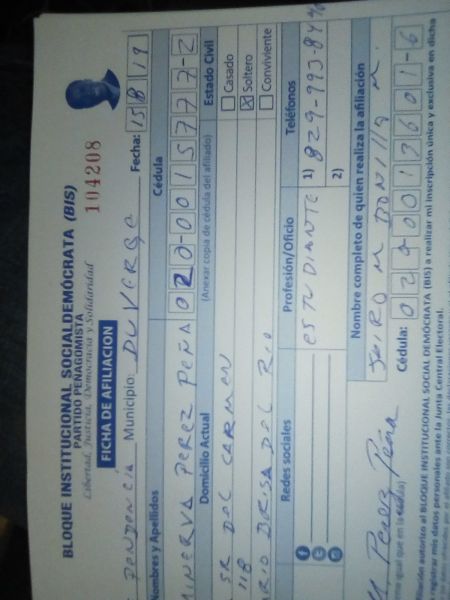 BLOQUE INSTITUCIONAL SOCIALDEMÓCRATA (BIS)
PARTIDO PEÑAGOMISTA
Libertad, Justicia, Democracia y Solidaridad
104208
FICHA DE AFILIACIÓN
Municipio: DUVERGE Fecha: 15 8 19
Nombres y Apellidos Cédula
MINERVA PEREZ PEÑA 020-0015777-2
Domicilio Actual (Anexar copia de cédula del afiliado) Estado Civil
SR DEL CARMEN
118
BRISA DEL
Casado
Soltero
Conviviente
Redes sociales Profesión/Oficio Teléfonos
ESTUDIANTE 1) 829-993-84
2)
Nombre completo de quien realiza la afiliación
M.
Perez Peña Cédula: 0 0013601-6
autorizo al BLOQUE INSTITUCIONAL SOCIAL DEMÓCRATA (BIS) a realizar mi inscripción única y exclusiva en dicha
registrar mis datos personales ante la Junta Central Electoral.